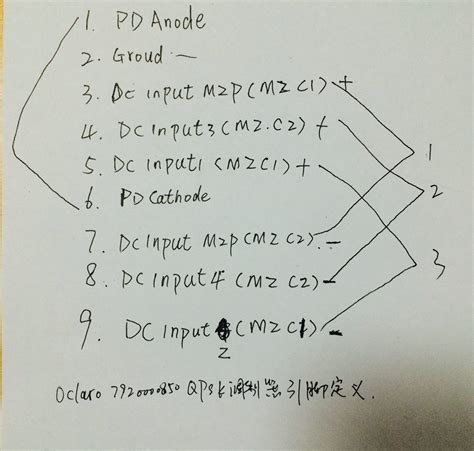 1. PD Anode
2. Groud —
3. Dc input MZP (MZ C1) +
4. DC input 3 (MZ. C2) +
5. DC input 1 (MZ C1) +
6. PD Cathode
7. DC input MZP (MZ C2). -
8. DC input 4 (MZ C2) -
9. DC input 2 (MZ C1) -
1
2
3
Oclaro 792000850 QPSK调制器引脚定义.